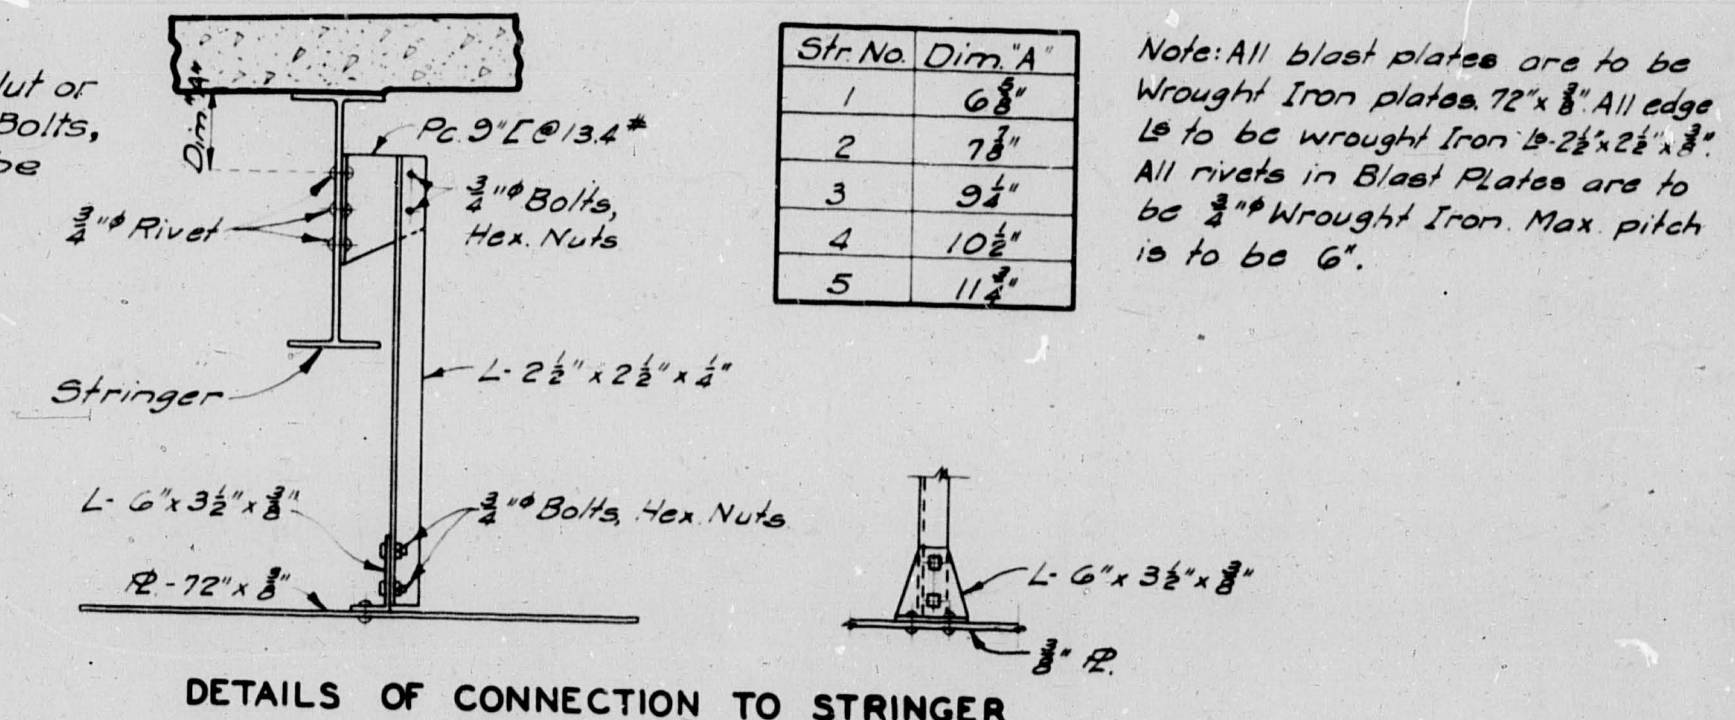 lut or
Bolts,
be
Dim. "A"
Pc. 9" [ @ 13.4 #
3/4"φ Bolts,
Hex. Nuts
3/4"φ Rivet
Stringer
L- 2 1/2" x 2 1/2" x 1/4"
L- 6" x 3 1/2" x 3/8"
3/4"φ Bolts, Hex. Nuts
PL - 72" x 3/8"
Str. No. Dim. "A"
1 6 5/8"
2 7 7/8"
3 9 1/4"
4 10 1/2"
5 11 3/4"
Note: All blast plates are to be
Wrought Iron plates. 72" x 3/8". All edge
Ls to be wrought Iron Ls-2 1/2" x 2 1/2" x 3/8".
All rivets in Blast Plates are to
be 3/4"φ Wrought Iron. Max. pitch
is to be 6".
L- 6" x 3 1/2" x 3/8"
3/8" PL.
DETAILS OF CONNECTION TO STRINGER